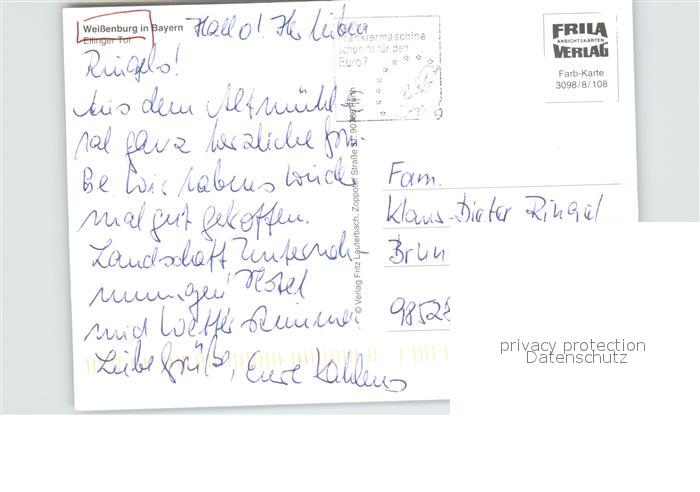 Weißenburg in Bayern
Ellinger Tor
Hallo! Ihr lieben
Ringels!
Aus dem Altmühl-
tal ganz herzliche Grü-
ße. Wir habens wieder
mal gut getroffen.
Landschaft Unterneh-
mungen Hotel
und Wetter stimmen
Liebe Grüße, Eure Kahlens
Frankiermaschine
schon fit für den
Euro?
FRILA
ANSICHTSKARTEN
VERLAG
Farb-Karte
3098/8/108
© Verlag Fritz Lauterbach, Zoppoter Straße 90766 Fürth
Fam.
Klaus-Dieter Ringel
Brun
98528
privacy protection
Datenschutz